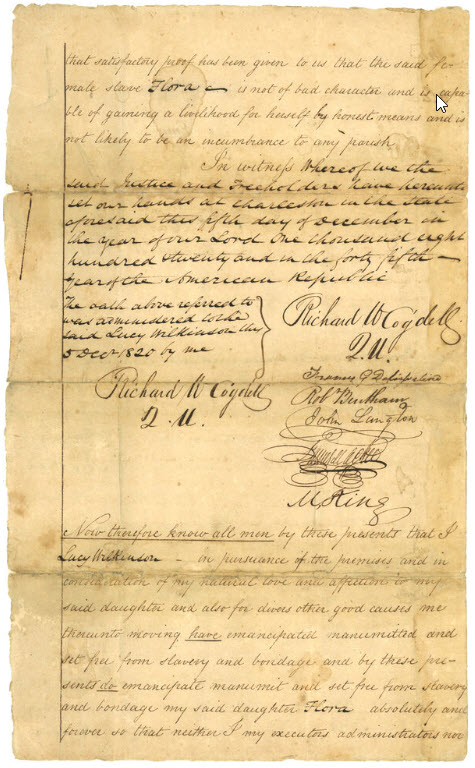 that satisfactory proof has been given to us that the said fe-
male slave Flora – is not of bad character and is capa
ble of gaining a livelihood for herself by honest means and is
not likely to be an incumbrance to any parish
In witness Whereof we the
said Justice and Freeholders have hereunto
set our hands at Charleston in the State
aforesaid this fifth day of December in
the year of our Lord One thousand eight
hundred & twenty and in the forty fifth –
year of the American Republic
The oath above referred to
was administered to the
said Lucy Wilkinson this
5 Decr 1820 by me
Richard W Cogdell
Q. U.
Richard W Cogdell
Q. U.
Francis G
Rob Bentham
John Langton
M. King
Now therefore know all men by these presents that I
Lucy Wilkinson – in pursuance of the premises and in
consideration of my natural love and affection to my
said daughter and also for divers other good causes me
thereunto moving have emancipated manumitted and
set free from slavery and bondage and by these pre-
sents do emancipate manumit and set free from slavery
and bondage my said daughter Flora absolutely and
forever so that neither I my executors administrators nor